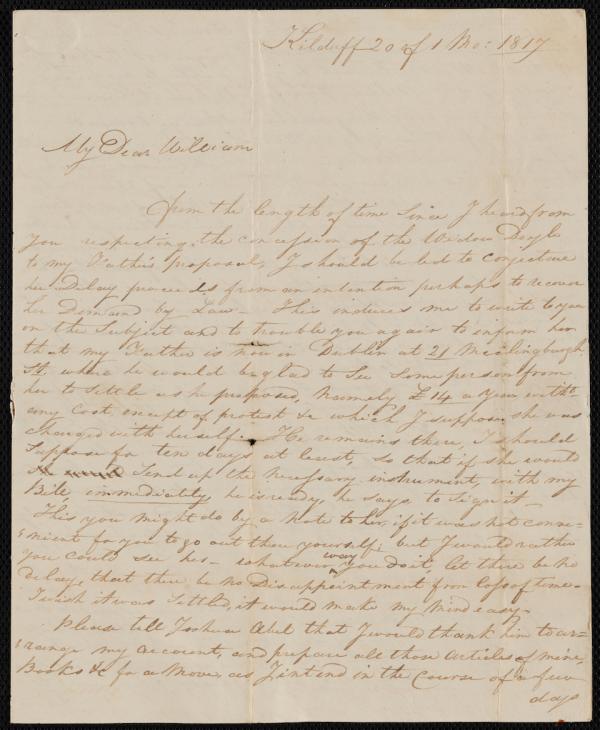 Kilduff 20 of 1 Mo: 1817
My Dear William
from the length of time Since I heard from
you respecting the concession of the Widow Doyle
to my Father's proposal, I should be led to conjecture
her Delay proceeds from an intention perhaps to recover
her Demand by Law – This induces me to write to you
on the Subject and to trouble you again to inform her
that my Father is now in Dublin at 21
St. where he would be glad to See Some person from
her to Settle as he proposed, Namely £14 a year with.t
any Cost except of protest &c which I suppose she was
charged with herself. He remains there, I should
Suppose for ten days at least, so that if she would
Send up the necessary instrument with my
Bill immediatly, he is ready, he says to Sign it –
This you might do by a Note to her, if it was not conve=
=nient for you to go out there yourself, but I would rather
you could see her – whatever way you do it, let there be no
delay, that there be no Disappointment from Loss of time –
I wish it was Settled, it would make my mind easy.
Please tell Joshua Abel that I would thank him to ar=
=range my account, and prepare all those articles of mine,
Books &c for a Move, as I intend in the Course of a few
days